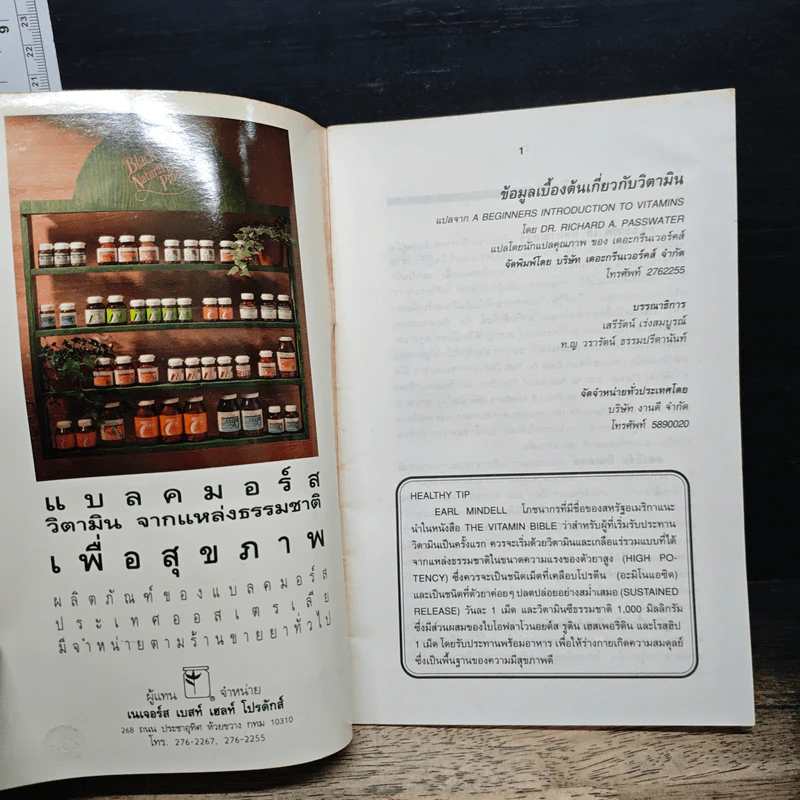 9
23
22
21
Black
Natural
แบลคมอร์ส
วิตามิน จากแหล่งธรรมชาติ
เพื่อสุขภาพ
ผลิตภัณฑ์ของแบลคมอร์ส
ประเทศออสเตรเลีย
มีจำหน่ายตามร้านขายยาทั่วไป
ผู้แทน ® จำหน่าย
เนเจอร์ส เบสท์ เฮลท์ โปรดักส์
268 ถนน ประชาอุทิศ ห้วยขวาง กทม 10310
โทร. 276-2267, 276-2255
1
ข้อมูลเบื้องต้นเกี่ยวกับวิตามิน
แปลจาก A BEGINNERS INTRODUCTION TO VITAMINS
โดย DR. RICHARD A. PASSWATER
แปลโดยนักแปลคุณภาพ ของ เดอะกรีนเวอร์คส์
จัดพิมพ์โดย บริษัท เดอะกรีนเวอร์คส์ จำกัด
โทรศัพท์ 2762255
บรรณาธิการ
เสรีรัตน์ เร่งสมบูรณ์
ท.ญ วรารัตน์ ธรรมปรีดานันท์
จัดจำหน่ายทั่วประเทศโดย
บริษัท งานดี จำกัด
โทรศัพท์ 5890020
HEALTHY TIP
EARL MINDELL โภชนากรที่มีชื่อของสหรัฐอเมริกาแนะ
นำในหนังสือ THE VITAMIN BIBLE ว่าสำหรับผู้ที่เริ่มรับประทาน
วิตามินเป็นครั้งแรก ควรจะเริ่มด้วยวิตามินและเกลือแร่รวมแบบที่ได้
จากแหล่งธรรมชาติในขนาดความแรงของตัวยาสูง (HIGH PO-
TENCY) ซึ่งควรจะเป็นชนิดเม็ดที่เคลือบโปรตีน (อะมิโนแอซิด)
และเป็นชนิดที่ตัวยาค่อยๆ ปลดปล่อยอย่างสม่ำเสมอ (SUSTAINED
RELEASE) วันละ 1 เม็ด และวิตามินซีธรรมชาติ 1,000 มิลลิกรัม
ซึ่งมีส่วนผสมของไบโอฟลาโวนอยด์ส รูติน เฮสเพอริดิน และโรสฮิป
1 เม็ด โดยรับประทานพร้อมอาหาร เพื่อให้ร่างกายเกิดความสมดุลย์
ซึ่งเป็นพื้นฐานของความมีสุขภาพดี